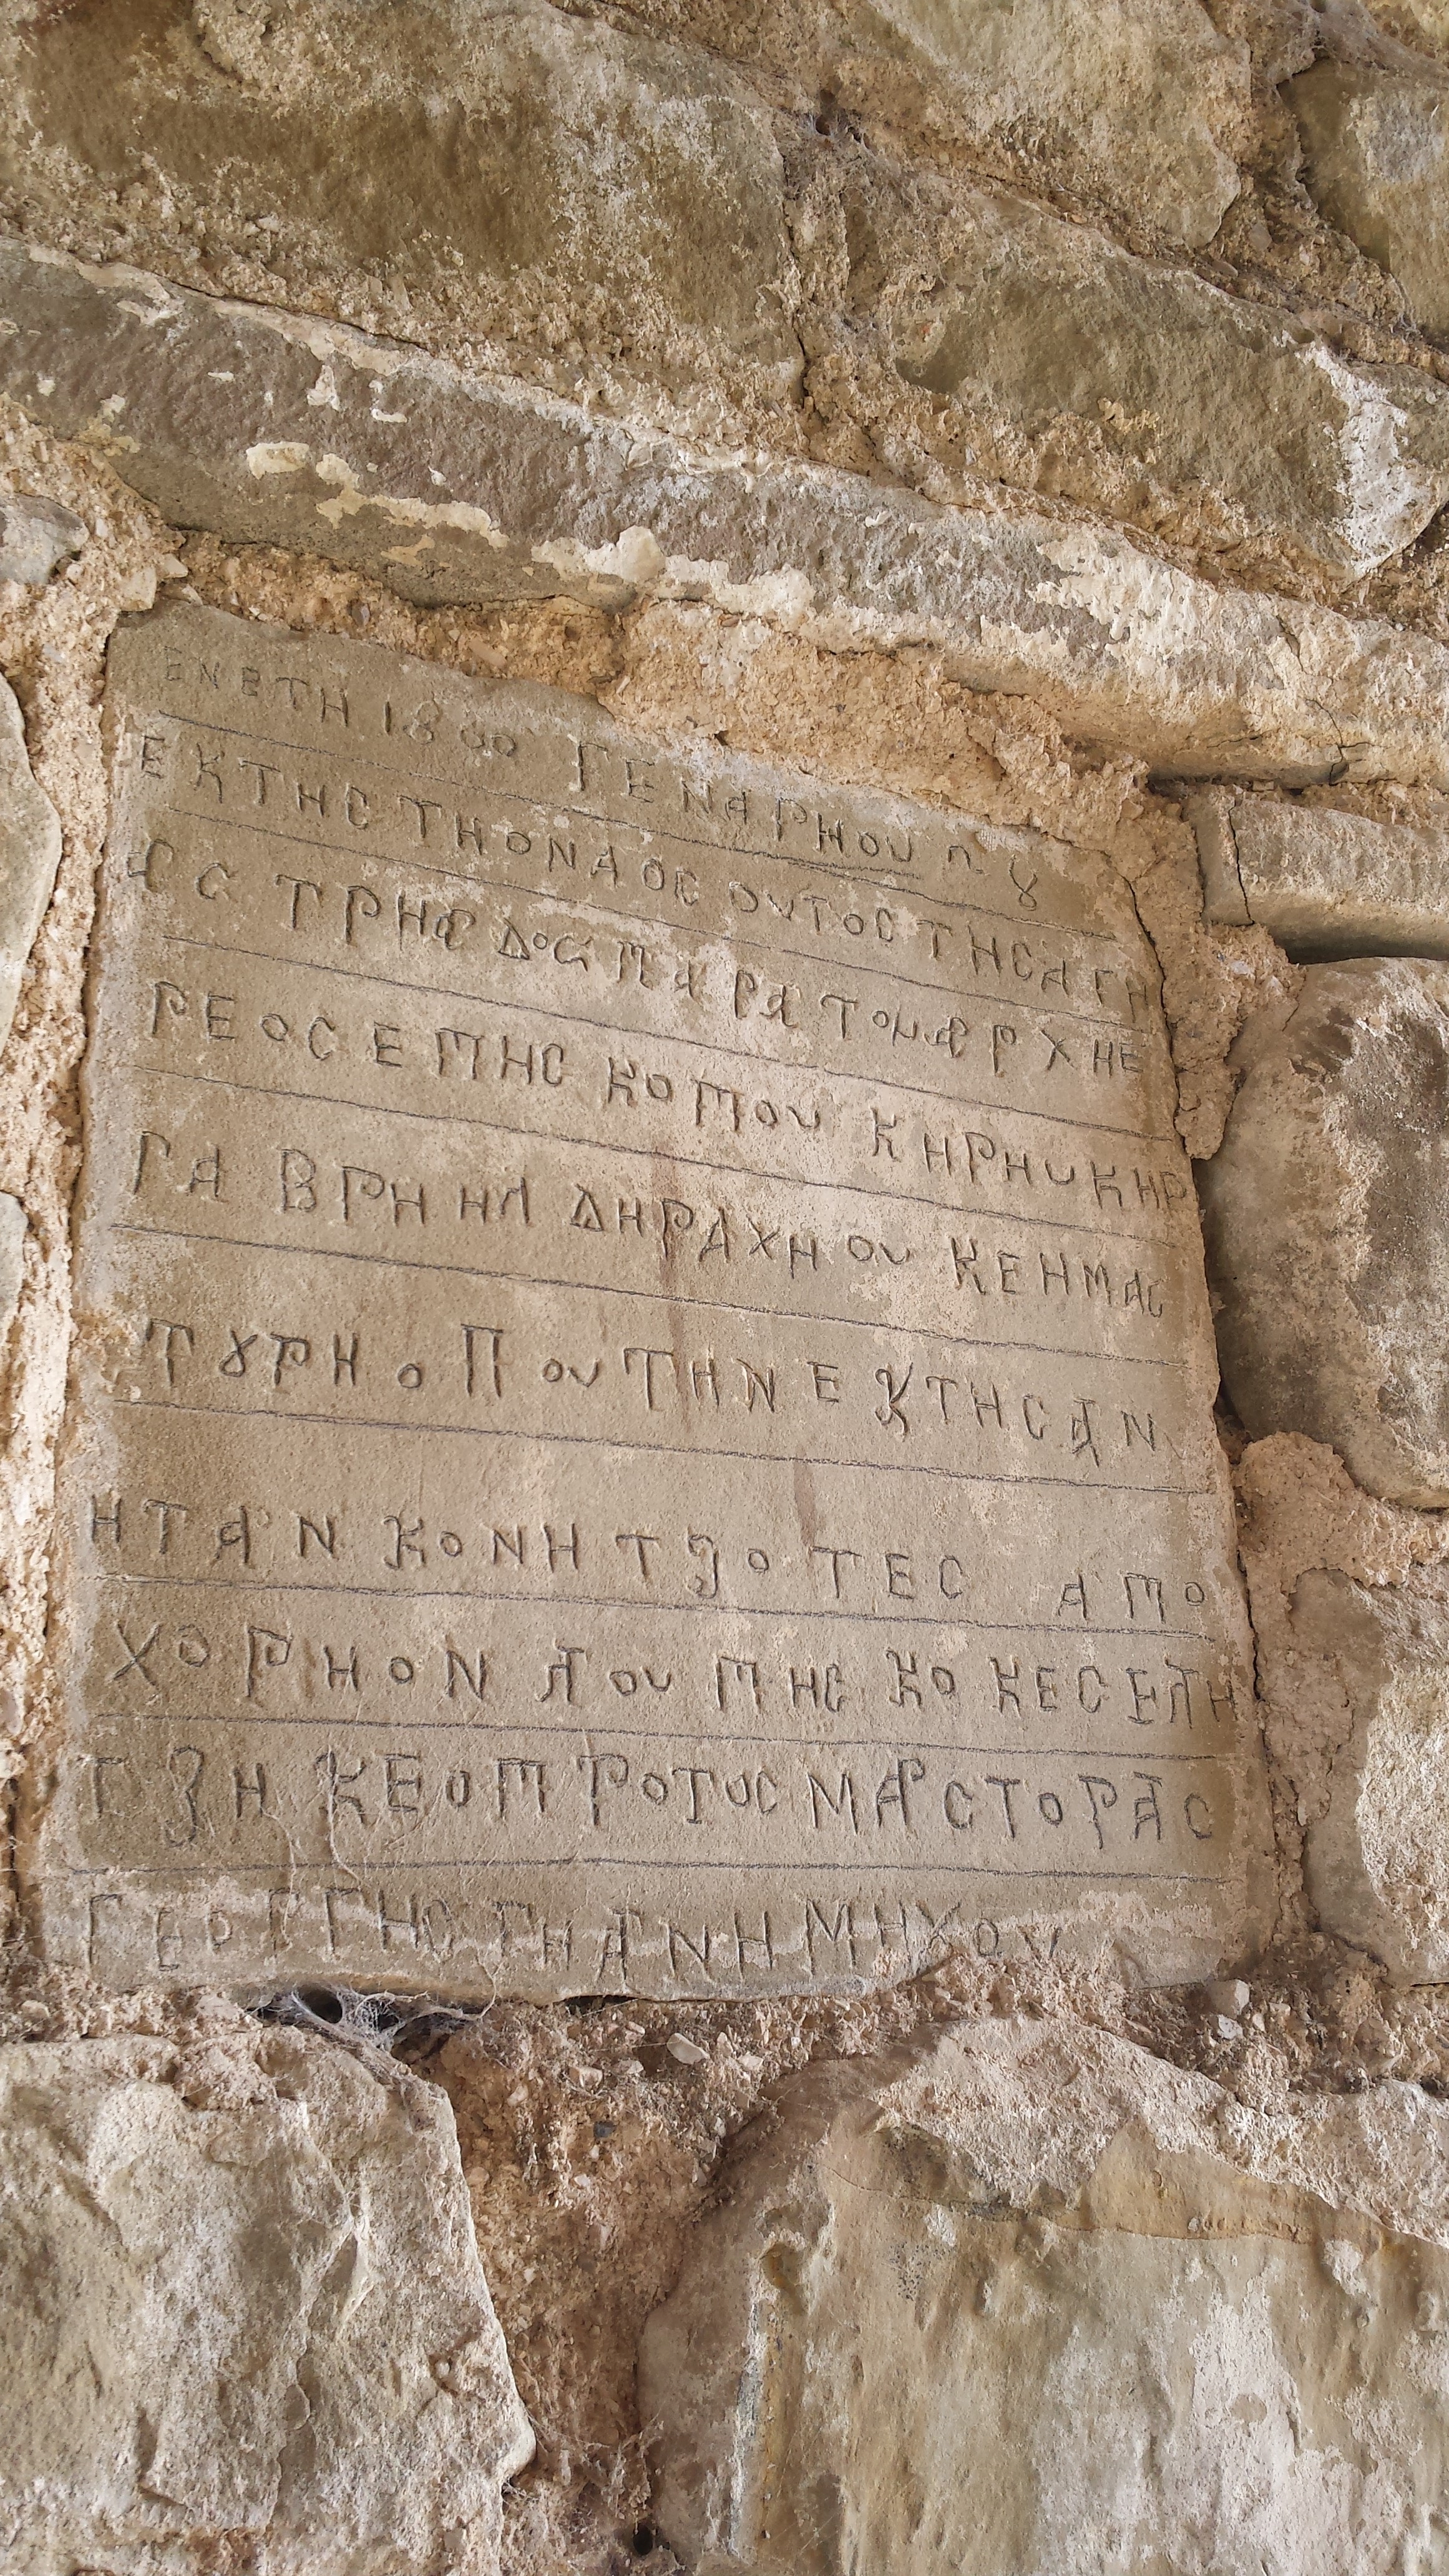 ΕΝ ΕΤΗ 1800 ΓΕΝΑΡΗΟΥ
ΕΚΤΗС ΤΗΟΝ ΑΟС ΟΥΤΟС ΤΗС ΑΓΗ
ΑС ΤΡΗΑΔΟС ΠΑΡΑ ΤΟΥ ΑΡΧΗΕ
ΡΕΟС ΕΠΗСΚΟΠΟΥ ΚΗΡΗΥ ΚΗΡ
ΓΑΒΡΗΗΛ ΔΗΡΑΧΗΟΥ ΚΕ Η ΜΑС
ΤȢΡΗ ΟΠΟΥ ΤΗΝ ΕΚΤΗСΑΝ
ΗΤΑΝ ΚΟΝΗΤЗΟΤΕС ΑΠΟ
ΧΟΡΗΟΝ ΛΟΥΠΗСΚΟ ΚΕ СΕΛΗ
ΤЗΗ ΚΕ Ο ΠΡΟΤΟС ΜΑСΤΟΡΑС
ΓΕΟΡΓΗС ΓΗΑΝΗ ΜΗΧΟΥ